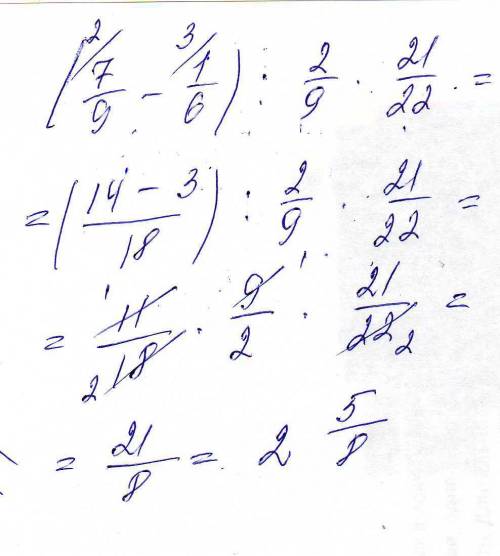 (²/7/9 - ³/1/6) : 2/9 · 21/22 =
= (14 - 3/18) : 2/9 · 21/22 =
= ¹11/₂18 · 9¹/2 · 21/22₂ =
= 21/8 = 2 5/8